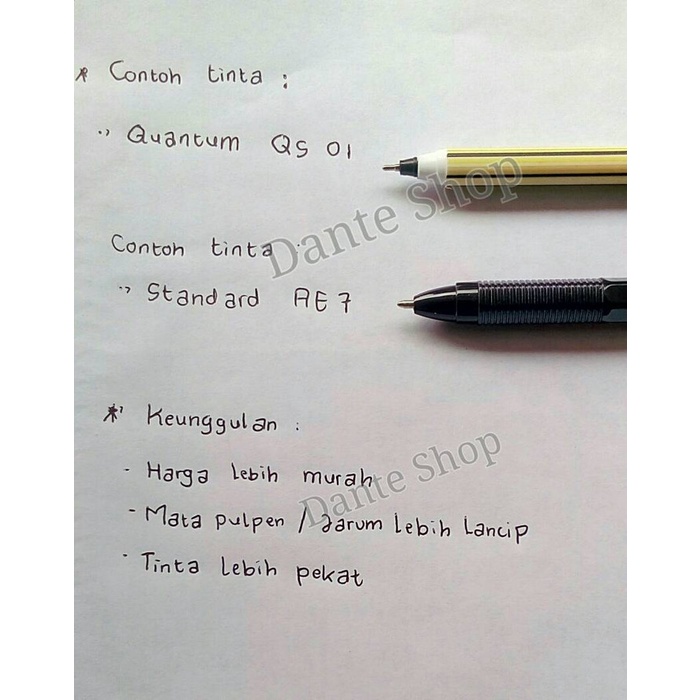 * Contoh tinta :
·, Quantum QS 01
Dante Shop
Contoh tinta :
·, Standard AE 7
* Keunggulan :
- Harga lebih murah
Dante Shop
- Mata pulpen / Jarum lebih Lancip
- Tinta lebih pekat